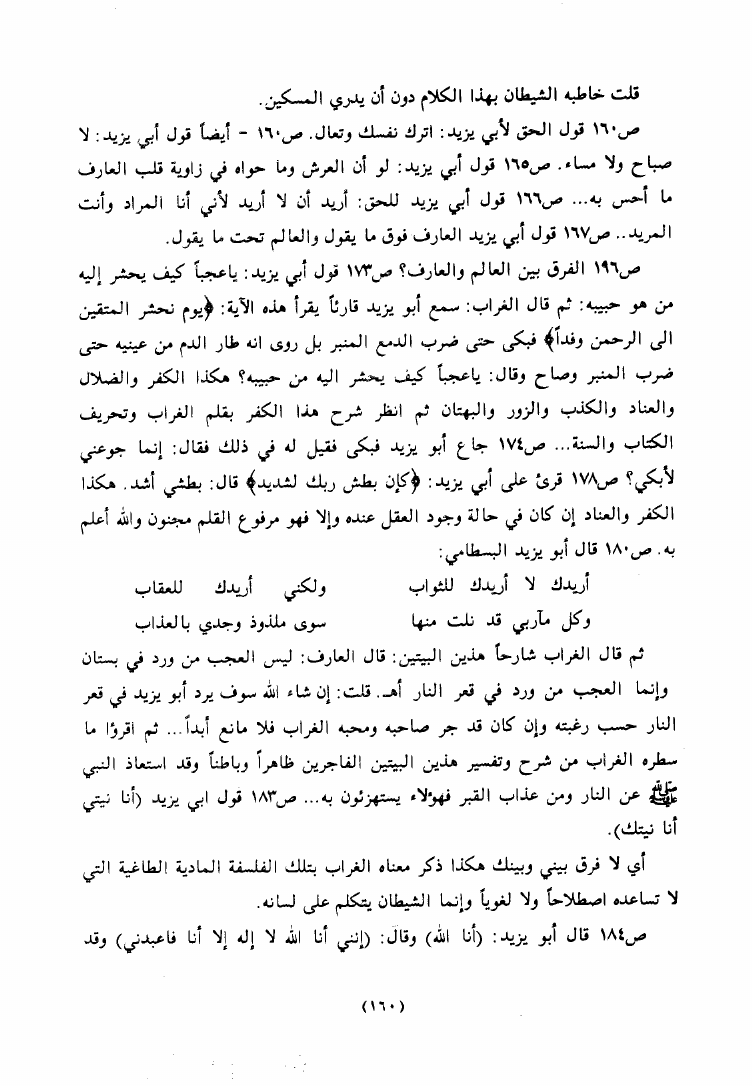 قلت خاطبه الشيطان بهذا الكلام دون أن يدري المسكين.
ص١٦٠ قول الحق لأبي يزيد: اترك نفسك وتعال. ص١٦٠ - أيضاً قول أبي يزيد: لا
صباح ولا مساء. ص١٦٥ قول أبي يزيد: لو أن العرش وما حواه في زاوية قلب العارف
ما أحس به... ص١٦٦ قول أبي يزيد للحق: أريد أن لا أريد لأني أنا المراد وأنت
المريد.. ص١٦٧ قول أبي يزيد العارف فوق ما يقول والعالم تحت ما يقول.
ص١٩٦ الفرق بين العالم والعارف؟ ص١٧٣ قول أبي يزيد: ياعجباً كيف يحشر إليه
من هو حبيبه: ثم قال الغراب: سمع أبو يزيد قارئاً يقرأ هذه الآية: ﴿يوم نحشر المتقين
الى الرحمن وفداً﴾ فبكى حتى ضرب الدمع المنبر بل روى انه طار الدم من عينيه حتى
ضرب المنبر وصاح وقال: ياعجباً كيف يحشر اليه من حبيبه؟ هكذا الكفر والضلال
والعناد والكذب والزور والبهتان ثم انظر شرح هذا الكفر بقلم الغراب وتحريف
الكتاب والسنة... ص١٧٤ جاع أبو يزيد فبكى فقيل له في ذلك فقال: إنما جوعني
لأبكي؟ ص١٧٨ قرئ على أبي يزيد: ﴿كإن بطش ربك لشديد﴾ قال: بطشي أشد. هكذا
الكفر والعناد إن كان في حالة وجود العقل عنده وإلا فهو مرفوع القلم مجنون والله أعلم
به. ص١٨٠ قال أبو يزيد البسطامي:
أريدك لا أريدك للثواب ولكني أريدك للعقاب
وكل مآربي قد نلت منها سوى ملذوذ وجدي بالعذاب
ثم قال الغراب شارحاً هذين البيتين: قال العارف: ليس العجب من ورد في بستان
وإنما العجب من ورد في قعر النار أهـ. قلت: إن شاء الله سوف يرد أبو يزيد في قعر
النار حسب رغبته وإن كان قد جر صاحبه ومحبه الغراب فلا مانع أبداً... ثم اقرؤا ما
سطره الغراب من شرح وتفسير هذين البيتين الفاجرين ظاهراً وباطناً وقد استعاذ النبي
ﷺ عن النار ومن عذاب القبر فهؤلاء يستهزئون به... ص١٨٣ قول ابي يزيد (أنا نيتي
أنا نيتك).
أي لا فرق بيني وبينك هكذا ذكر معناه الغراب بتلك الفلسفة المادية الطاغية التي
لا تساعده اصطلاحاً ولا لغوياً وإنما الشيطان يتكلم على لسانه.
ص١٨٤ قال أبو يزيد: (أنا الله) وقال: (إنني أنا الله لا إله إلا أنا فاعبدني) وقد
(١٦٠)